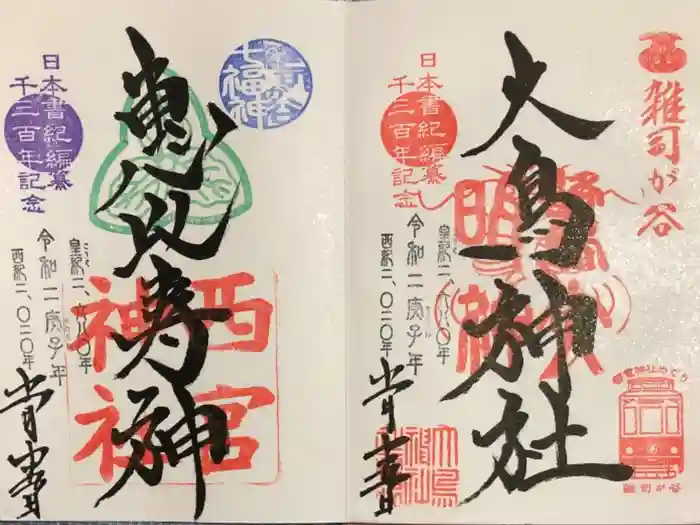 雑司が谷
大鳥神社
日本書紀編纂
千三百年記念
皇紀二、六八〇年
令和二庚子年
西紀二、〇二〇年
都電神社めぐり
雑司が谷
七福神
恵比寿神
西宮
神社
日本書紀編纂
千三百年記念
皇紀二、六八〇年
令和二庚子年
西紀二、〇二〇年